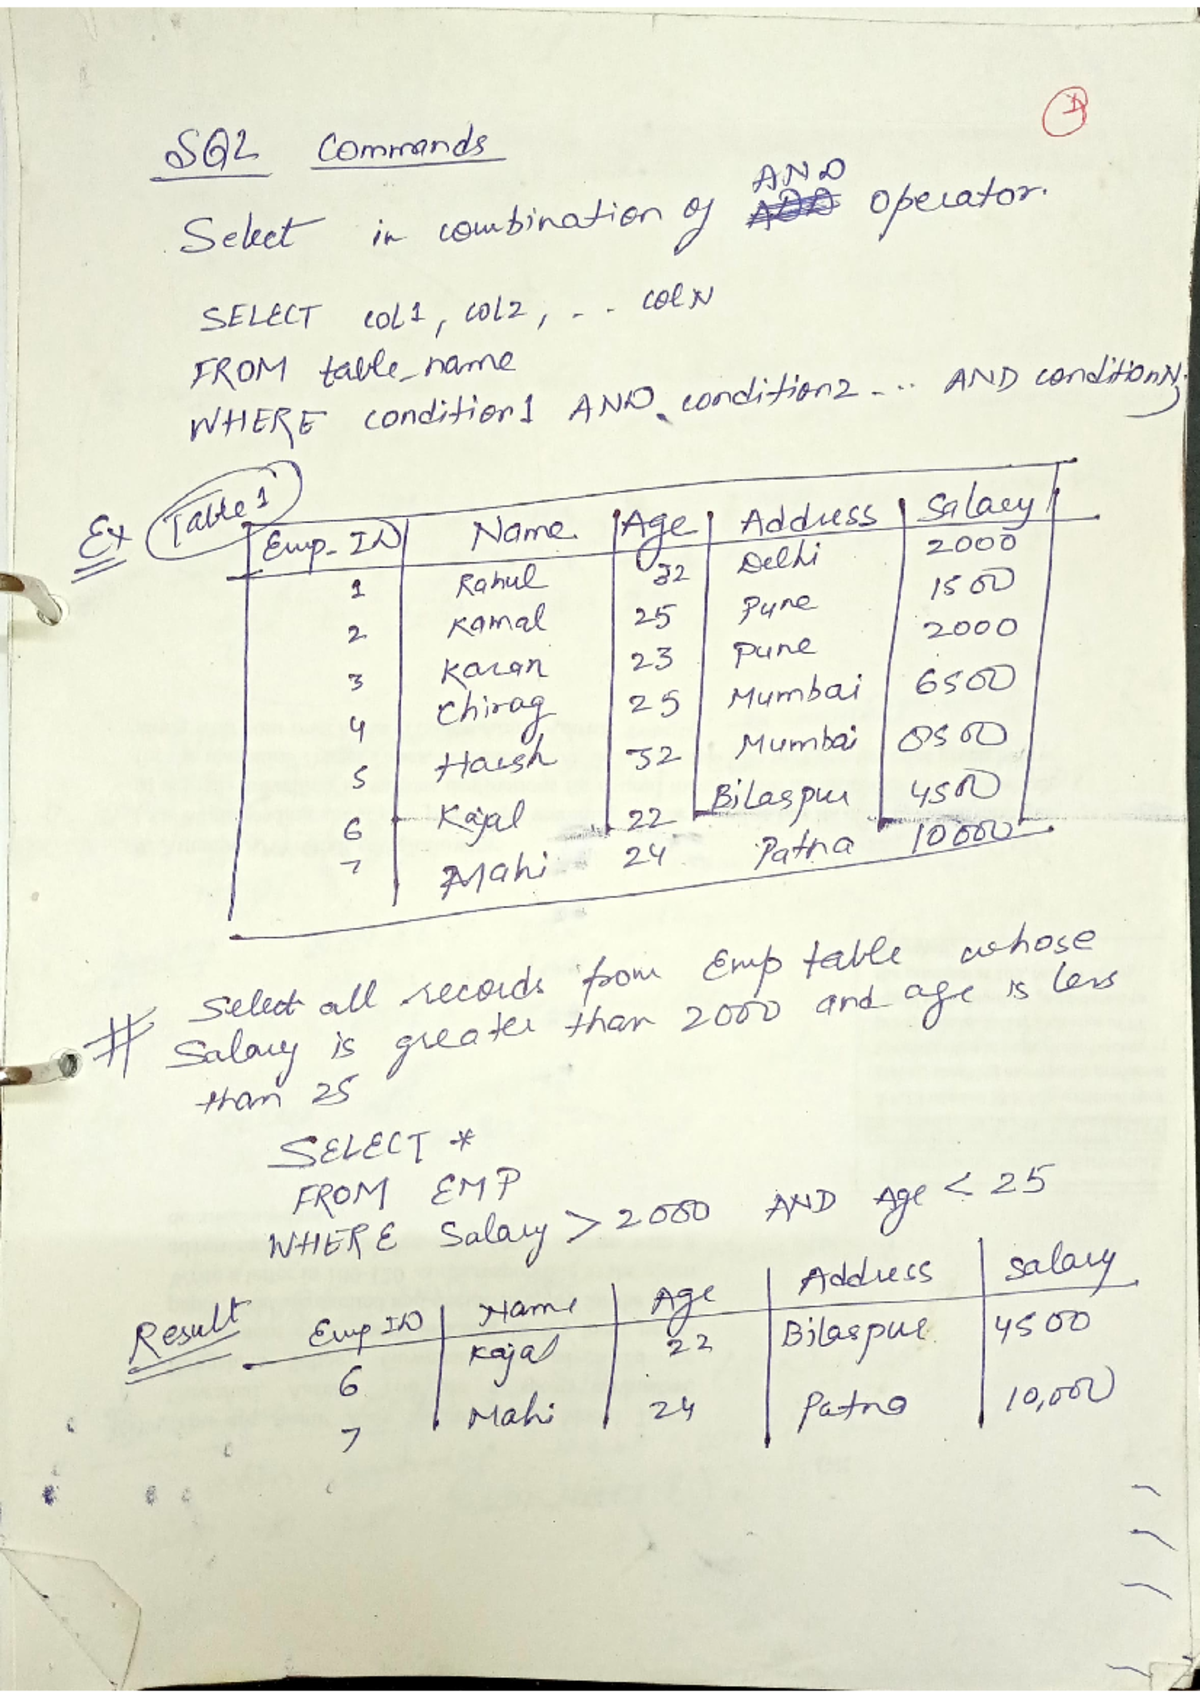 SQL Commands
AND
Select in combination of operator.
SELECT col1, col2, - - colN
FROM table_name
WHERE condition1 AND condition2 - .. AND conditionN;
Ex Table 1
Emp-ID Name Age Address Salary
1 Rahul 32 Delhi 2000
2 Kamal 25 Pune 1500
3 Karan 23 Pune 2000
4 Chirag 25 Mumbai 6500
5 Harsh 32 Mumbai 8500
6 Kajal 22 Bilaspur 4500
7 Mahi 24 Patna 10000
# Select all records from Emp table whose
Salary is greater than 2000 and age is less
than 25
SELECT *
FROM EMP
WHERE Salary > 2000 AND Age < 25
Result
Emp ID Name Age Address Salary
6 Kajal 22 Bilaspur 4500
7 Mahi 24 Patna 10,000